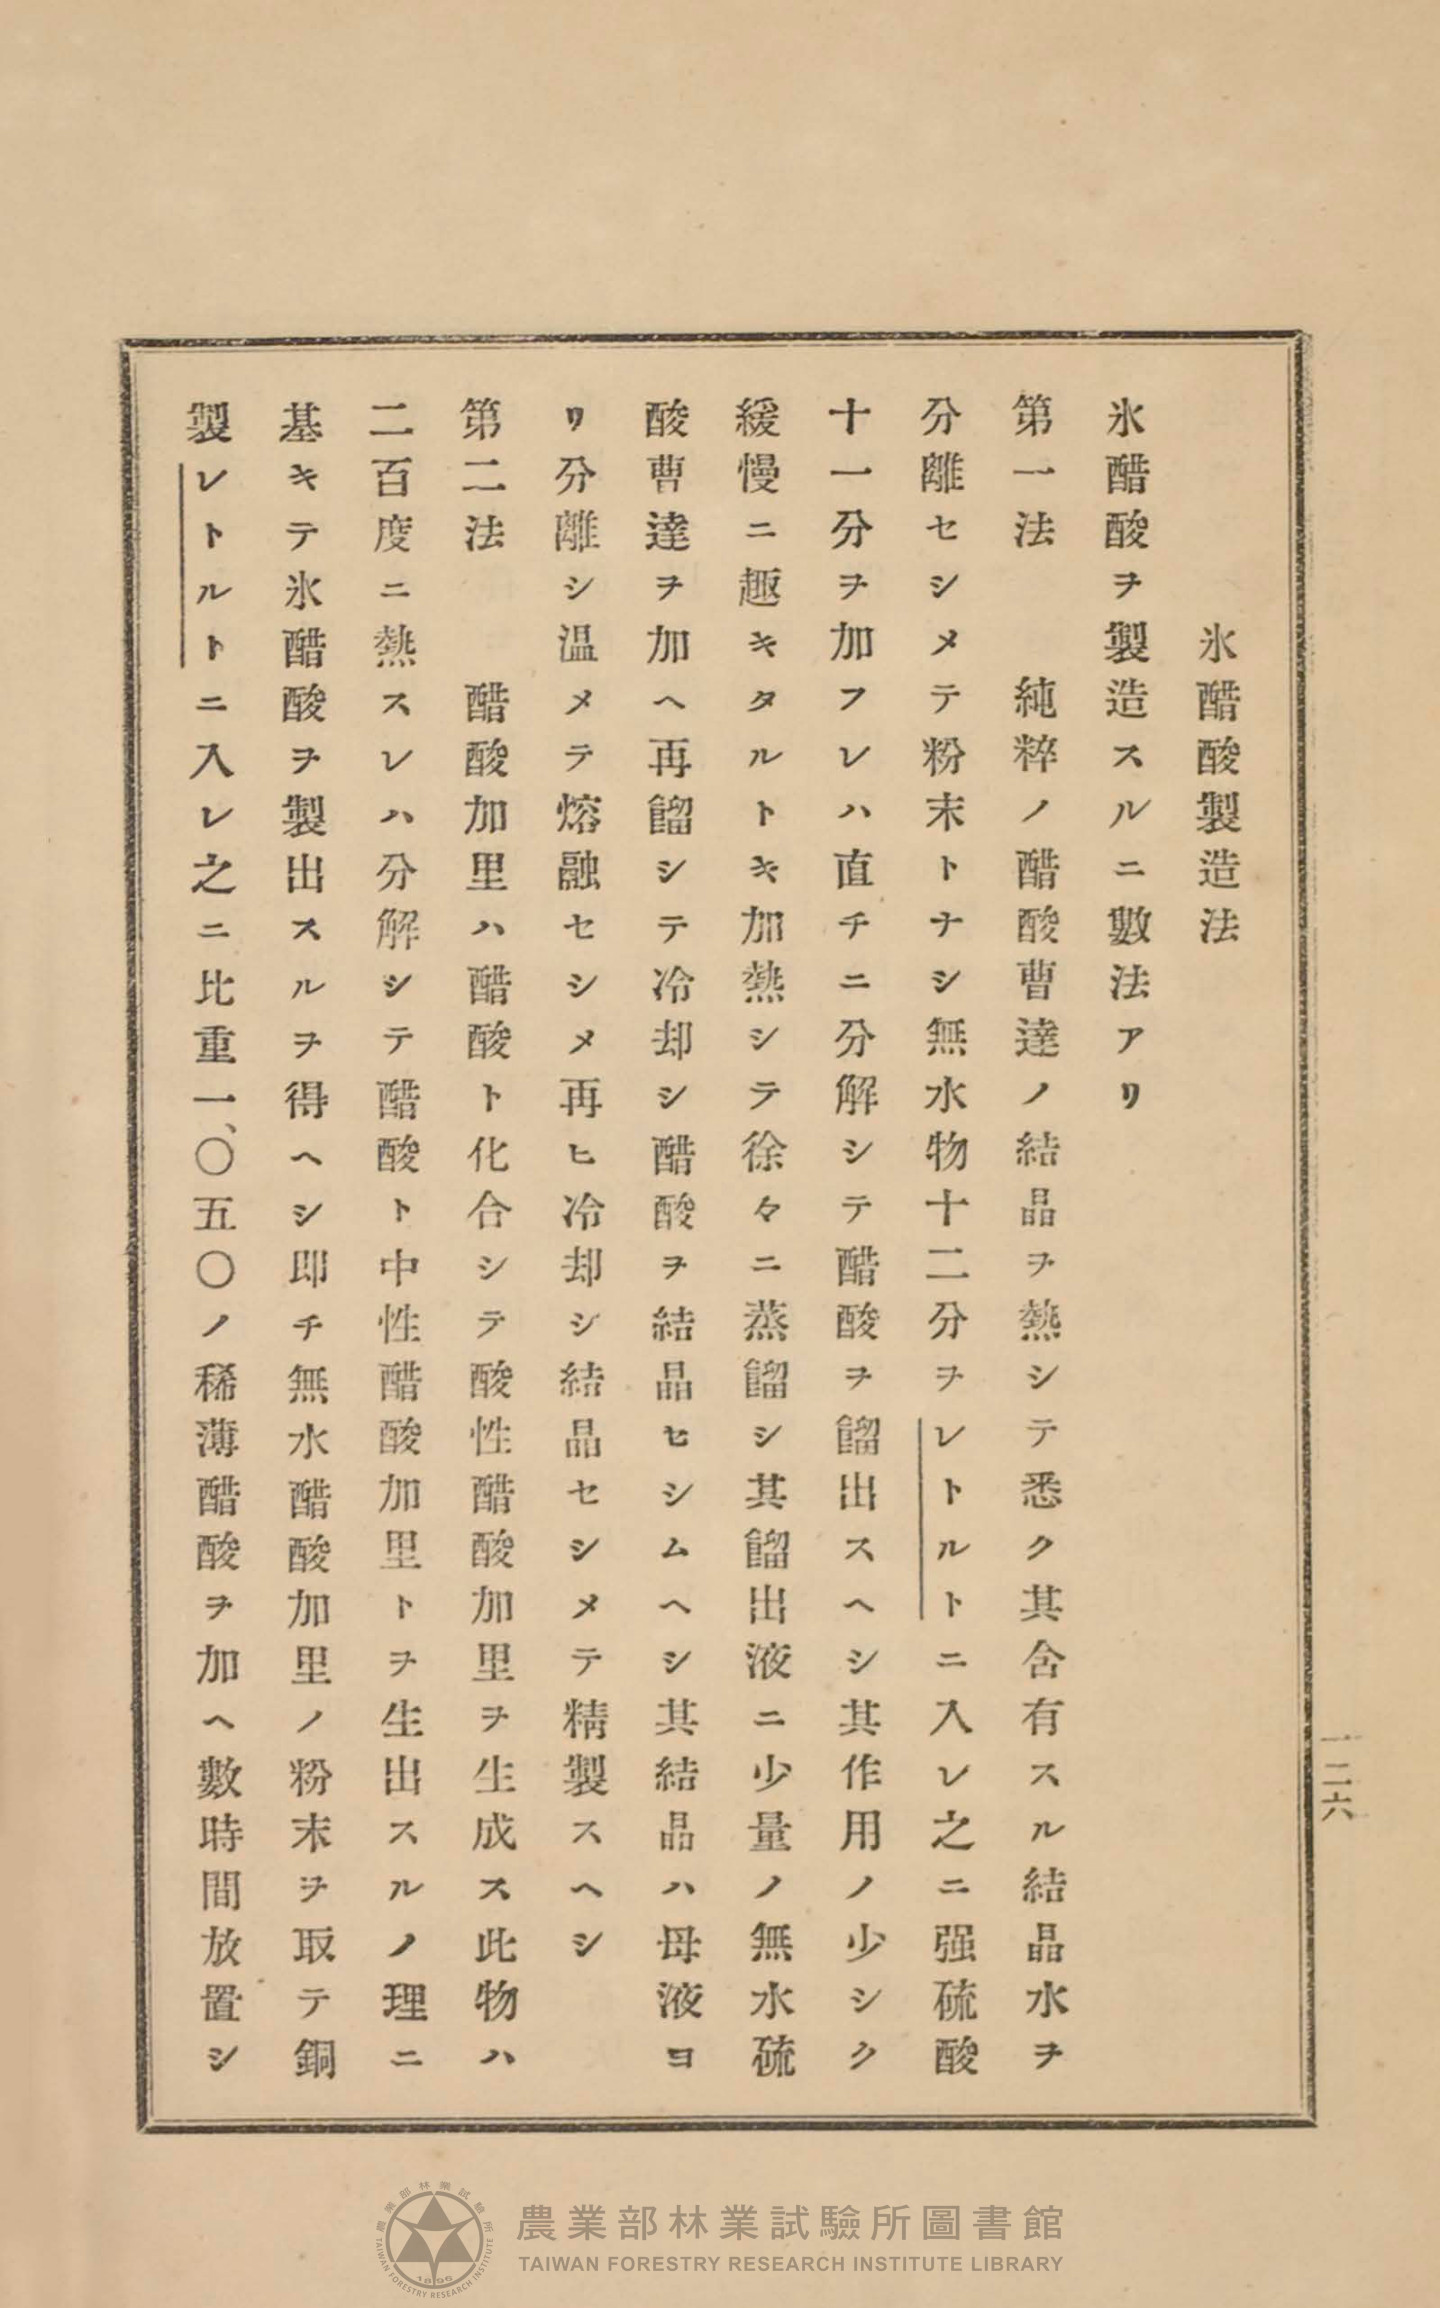 氷醋酸製造法
氷醋酸ヲ製造スルニ數法アリ
第一法　純粹ノ醋酸曹達ノ結晶ヲ熱シテ悉ク其含有スル結晶水ヲ
分離セシメテ粉末トナシ無水物十二分ヲレトルトニ入レ之ニ强硫酸
十一分ヲ加フレハ直チニ分解シテ醋酸ヲ餾出スヘシ其作用ノ少シク
緩慢ニ趣キタルトキ加熱シテ徐々ニ蒸餾シ其餾出液ニ少量ノ無水硫
酸曹達ヲ加ヘ再餾シテ冷却シ醋酸ヲ結晶セシムヘシ其結晶ハ母液ヨ
リ分離シ温メテ熔融セシメ再ヒ冷却シ結晶セシメテ精製スヘシ
第二法　醋酸加里ハ醋酸ト化合シテ酸性醋酸加里ヲ生成ス此物ハ
二百度ニ熱スレハ分解シテ醋酸ト中性醋酸加里トヲ生出スルノ理ニ
基キテ氷醋酸ヲ製出スルヲ得ヘシ即チ無水醋酸加里ノ粉末ヲ取テ銅
製レトルトニ入レ之ニ比重一、〇五〇ノ稀薄醋酸ヲ加ヘ數時間放置シ
一二六
農業部林業試驗所圖書館
TAIWAN FORESTRY RESEARCH INSTITUTE LIBRARY
農業部林業試驗所
TAIWAN FORESTRY RESEARCH INSTITUTE
1896